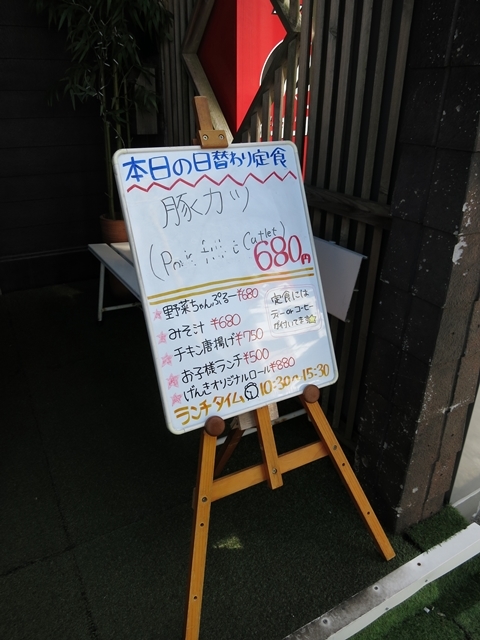 本日の日替わり定食
豚カツ
Cutlet)
680円
野菜ちゃんぷるー¥680
みそ汁 ¥680
チキン唐揚げ¥750
お子様ランチ¥500
げんきオリジナルロール¥880
定食には
ティーorコーヒー
が付いてます
ランチタイム 10:30~15:30